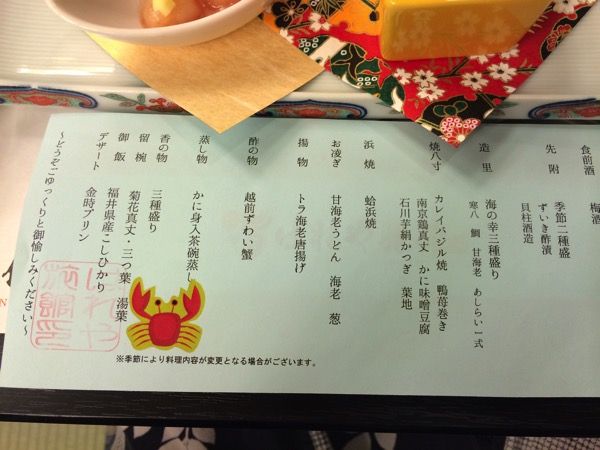 食前酒　梅酒
先附　季節二種盛
ずいき酢漬
貝柱酒造
造里　海の幸三種盛り
寒八　鯛　甘海老　あしらい一式
焼八寸　カレイバジル焼　鴨苺巻き
南京鶏真丈　かに味噌豆腐
石川芋絹かつぎ　葉地
浜焼　蛤浜焼
お凌ぎ　甘海老うどん　海老　葱
揚物　トラ海老唐揚げ
酢の物　越前ずわい蟹
蒸し物　かに身入茶碗蒸し
香の物　三種盛り
留椀　菊花真丈・三つ葉　湯葉
御飯　福井県産こしひかり
デザート　金時プリン
～どうぞごゆっくりと御愉しみください～
※季節により料理内容が変更となる場合がございます。